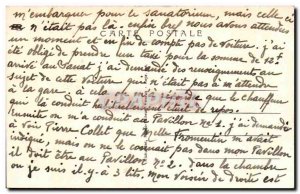 m'embarquer pour le sanatorium, mais celle ci
n'était pas là. enfin bref nous avons attendu
CARTE POSTALE
un moment et en fin de compte pas de voiture, j'ai
été obligé de prendre un taxi pour la somme de 12f
arrivé au Sanat j'ai demandé des renseignements au
sujet de cette voiture qui n'était pas à m'attendre
à la gare, à cela que le chauffeur
qui la conduit de repos.
ensuite on m'a conduit au Pavillon N° 4, j'ai demandé
voir Pierre Collot que Melle Fromentin m'avait
indiqué, mais on ne le connait pas dans mon Pavillon
il doit être au Pavillon N° 2. dans la chambre
ou je suis il y a 3 lits, mon voisin de droite est